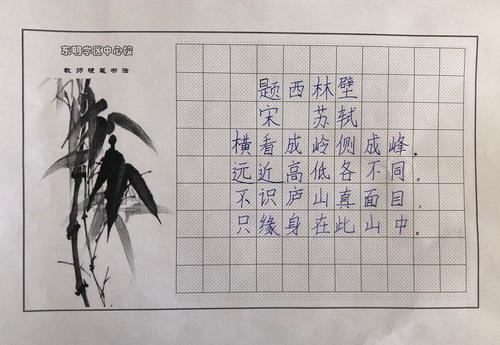 东明学区中心校
教师硬笔书法
题西林壁
宋 苏轼
横看成岭侧成峰。
远近高低各不同。
不识庐山真面目，
只缘身在此山中。